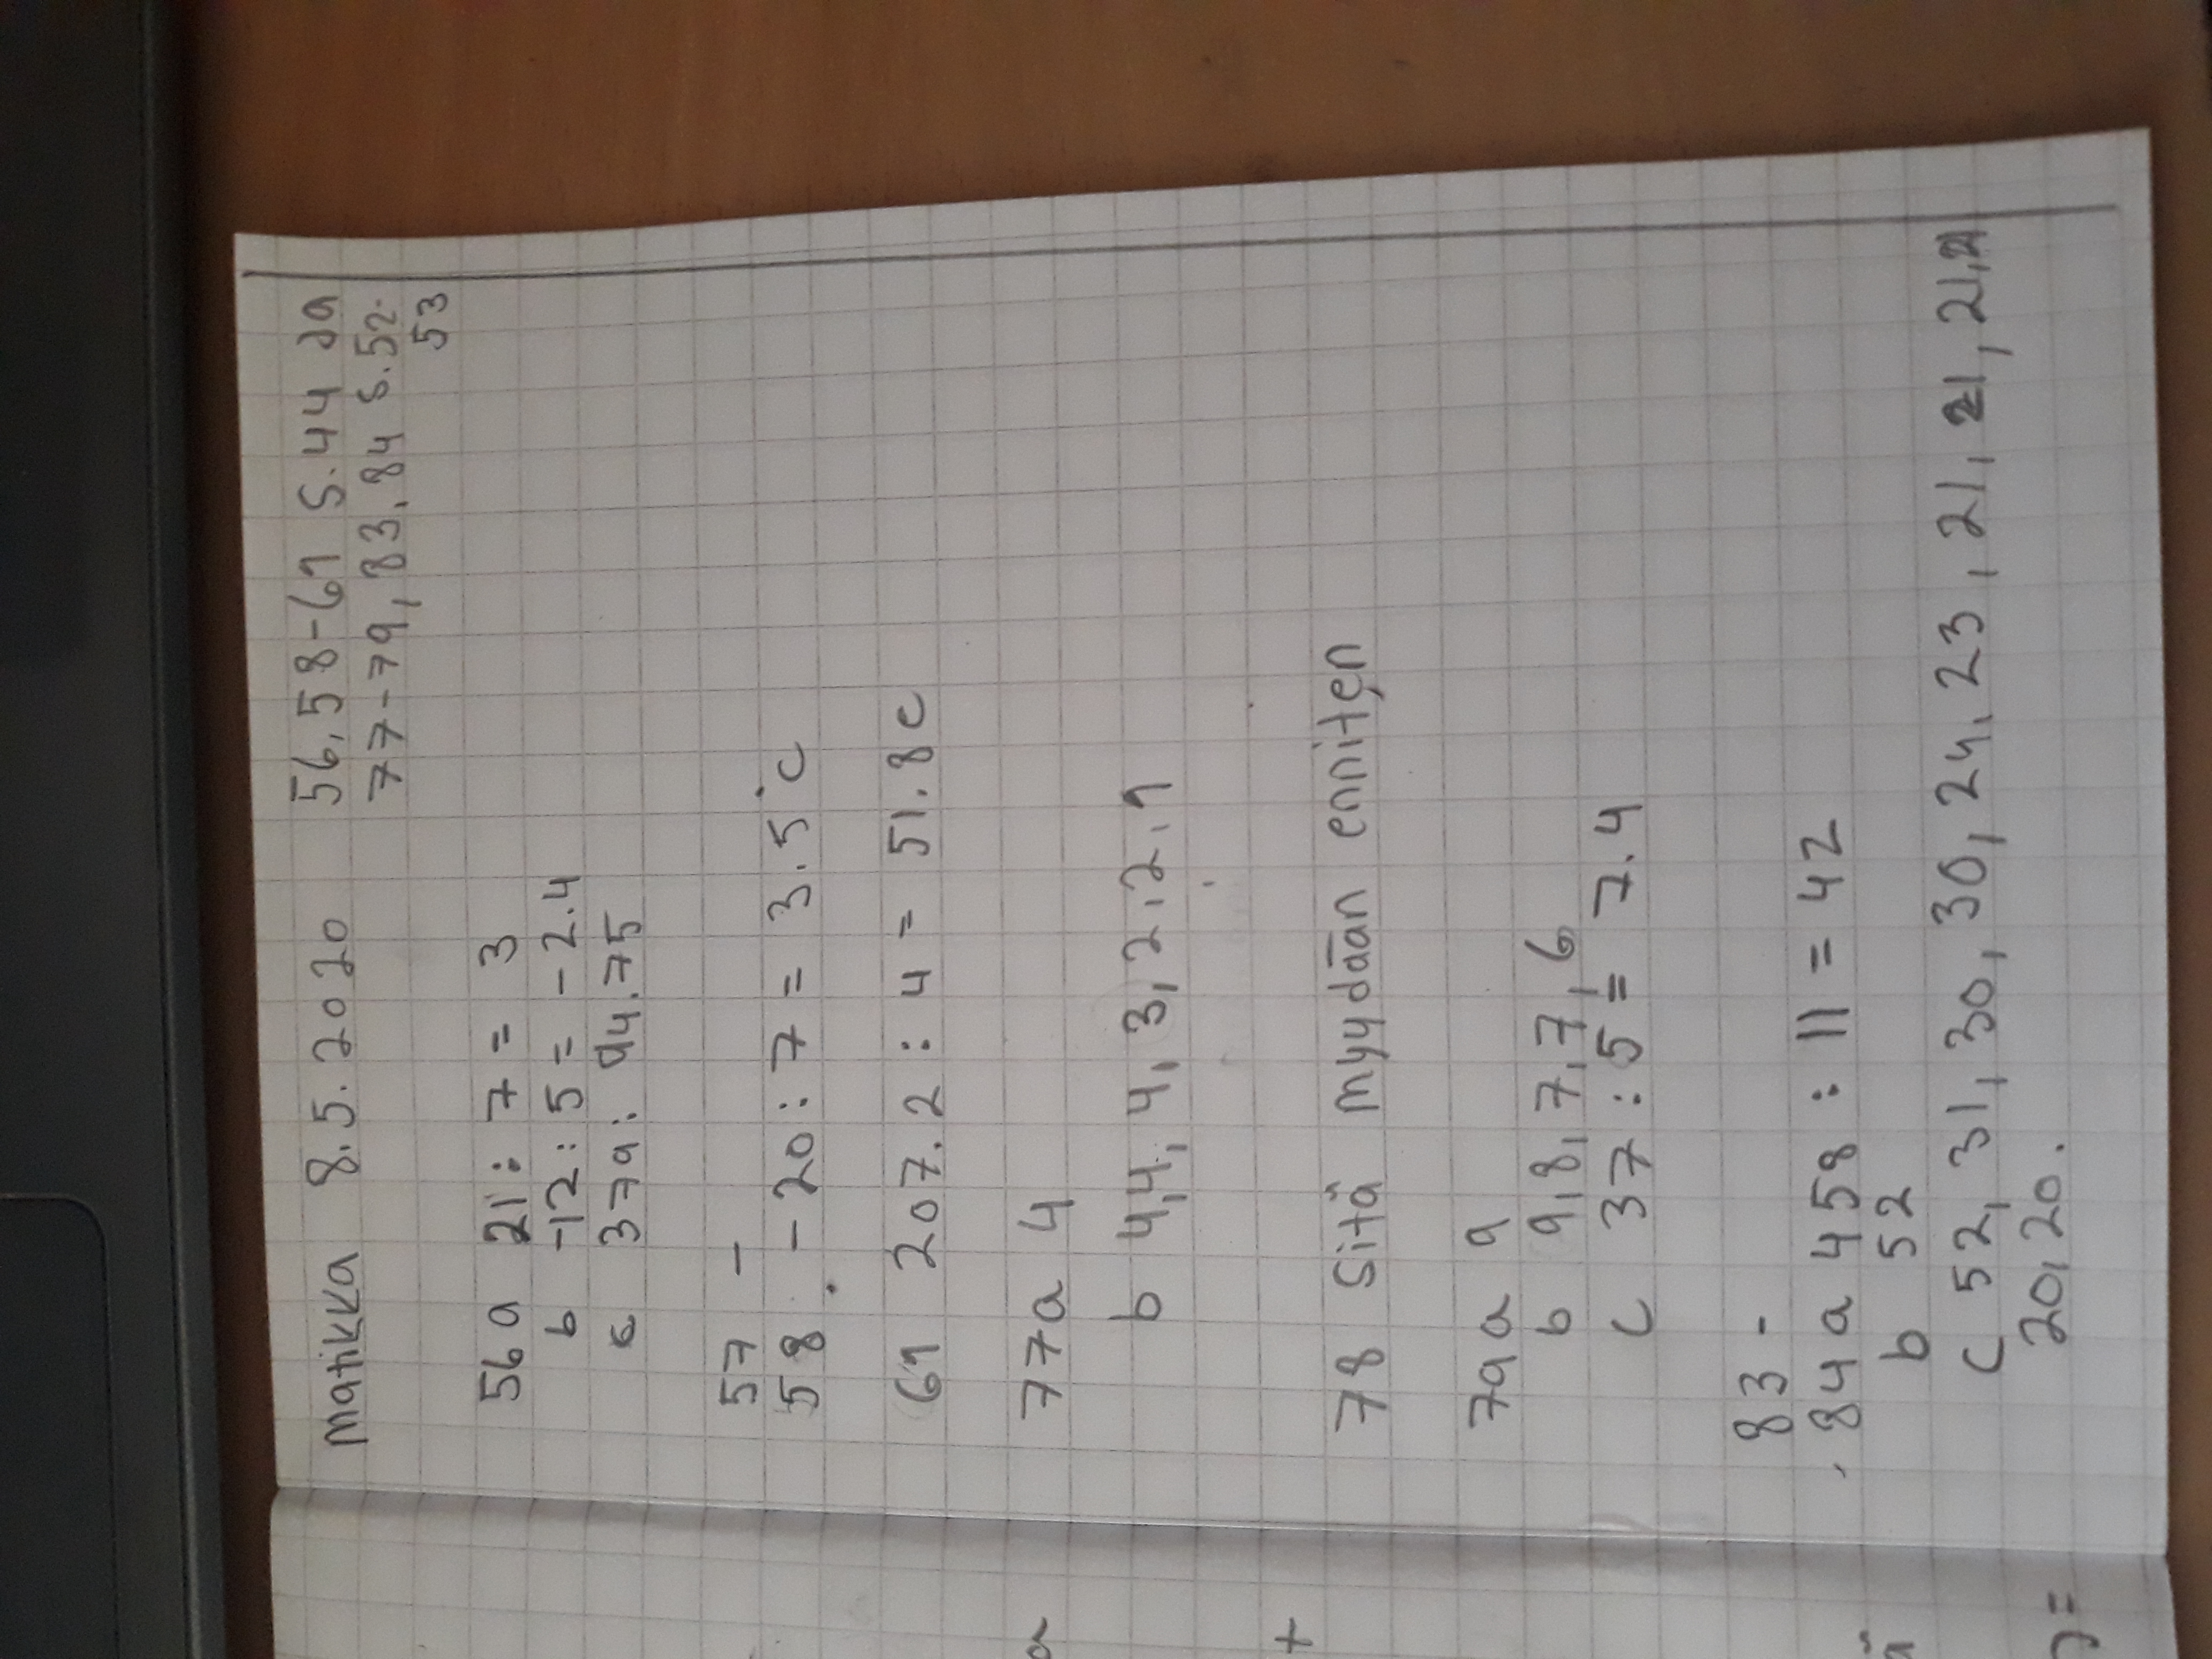 matikka 8.5.2020 56,58-61 s.44 ja
77-79, 83, 84 s.52-
53
56 a 21 : 7 = 3
b -12 : 5 = -2.4
c 379 : 94.75
57 -
58 - 20 : 7 = 3.5°C
61 207.2 : 4 = 51.8c
77a 4
b 4,4,4,3,2,2,1
78 Sitä myydään enniten
79a 9
b 9,8,7,7,6
c 37 : 5 = 7.4
83 -
84 a 458 : 11 = 42
b 52
c 52, 31, 30, 30, 24, 23, 21, 21, 21, 21,
20, 20.